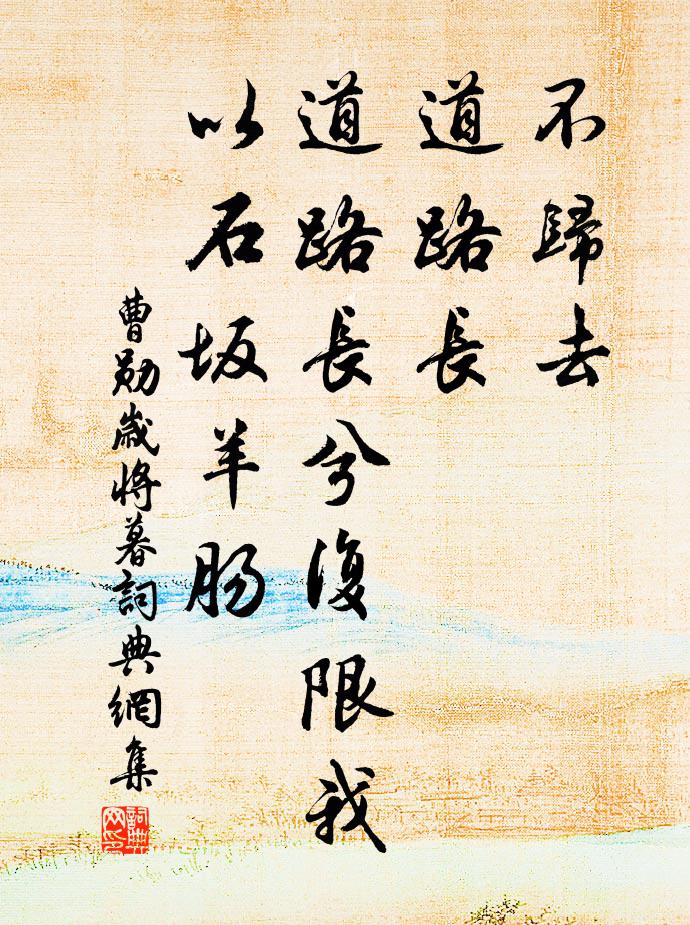 不歸去
道路長
道路長兮復限我
以石坂羊腸
曹勛歲將暮詞典網集
詞典
網印